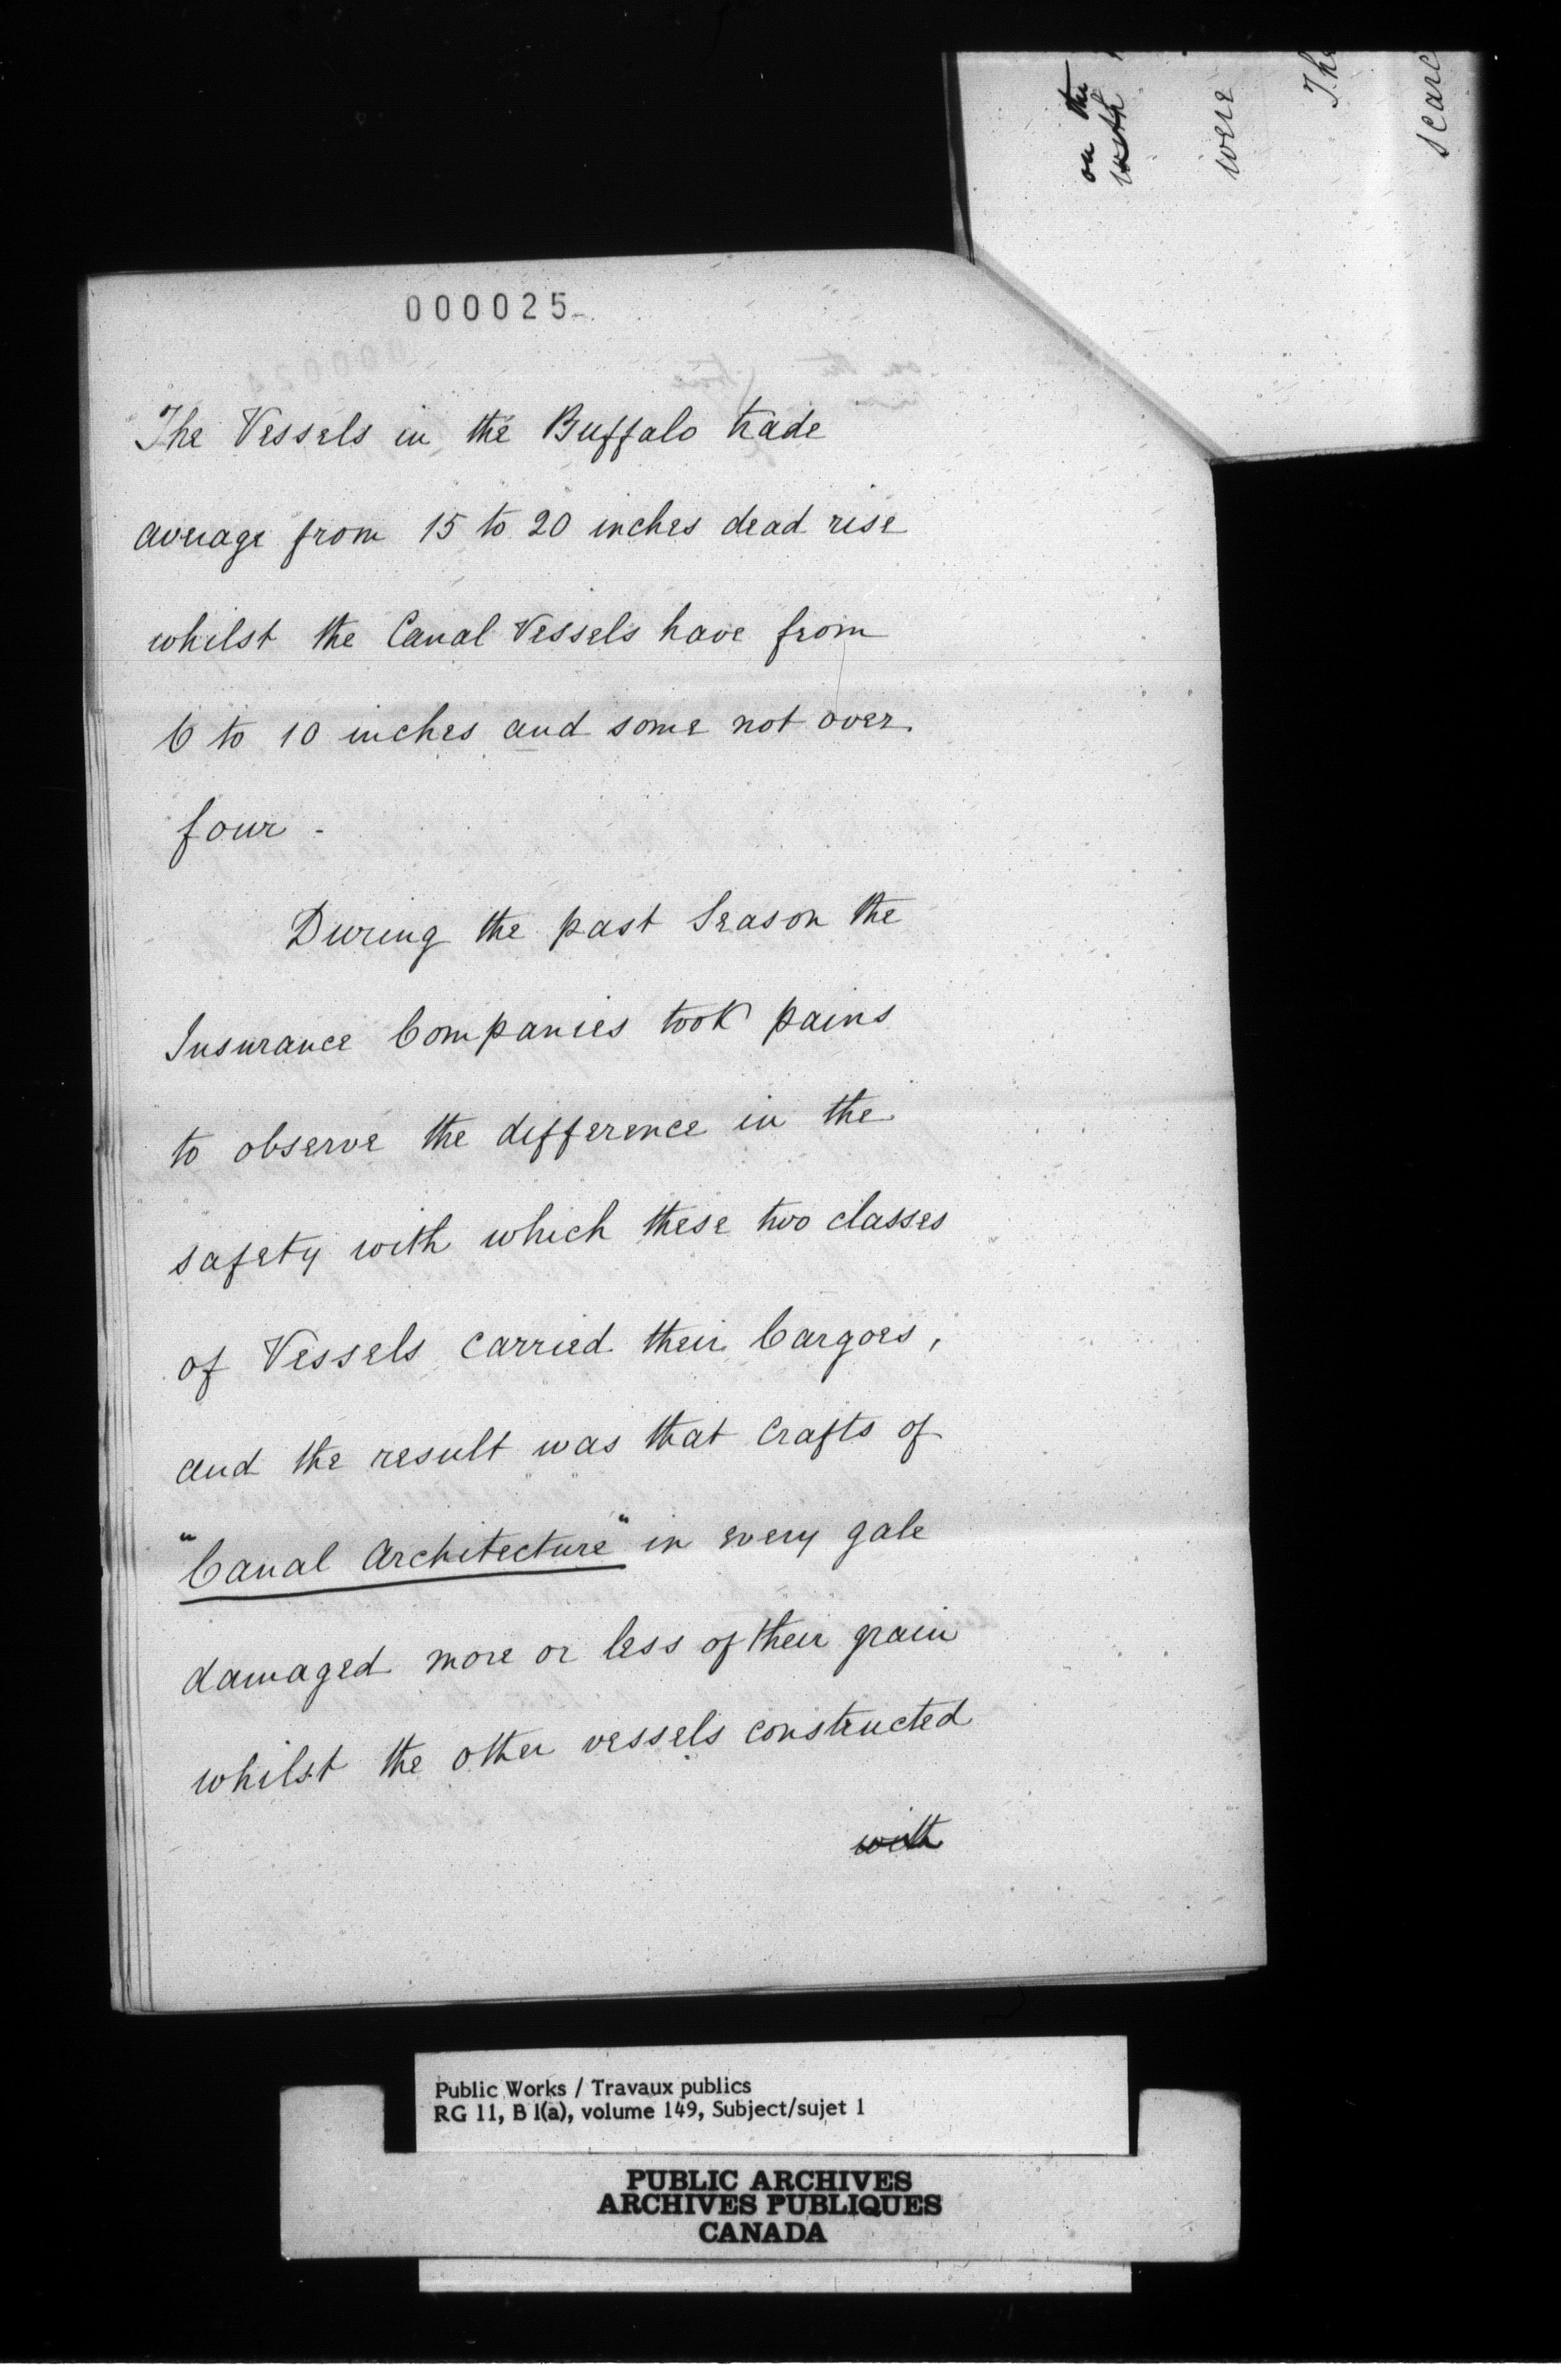 000025
The Vessels in the Buffalo trade
average from 15 to 20 inches dead rise
whilst the Canal Vessels have from
6 to 10 inches and some not over
four -
During the past Season the
Insurance Companies took pains
to observe the difference in the
safety with which these two classes
of Vessels carried their Cargoes,
and the result was that Crafts of
"Canal Architecture" in every gale
damaged more or less of their grain
whilst the other vessels constructed
with
on the
with
were
The
scarc
Public Works / Travaux publics
RG 11, B 1(a), volume 149, Subject/sujet 1
PUBLIC ARCHIVES
ARCHIVES PUBLIQUES
CANADA